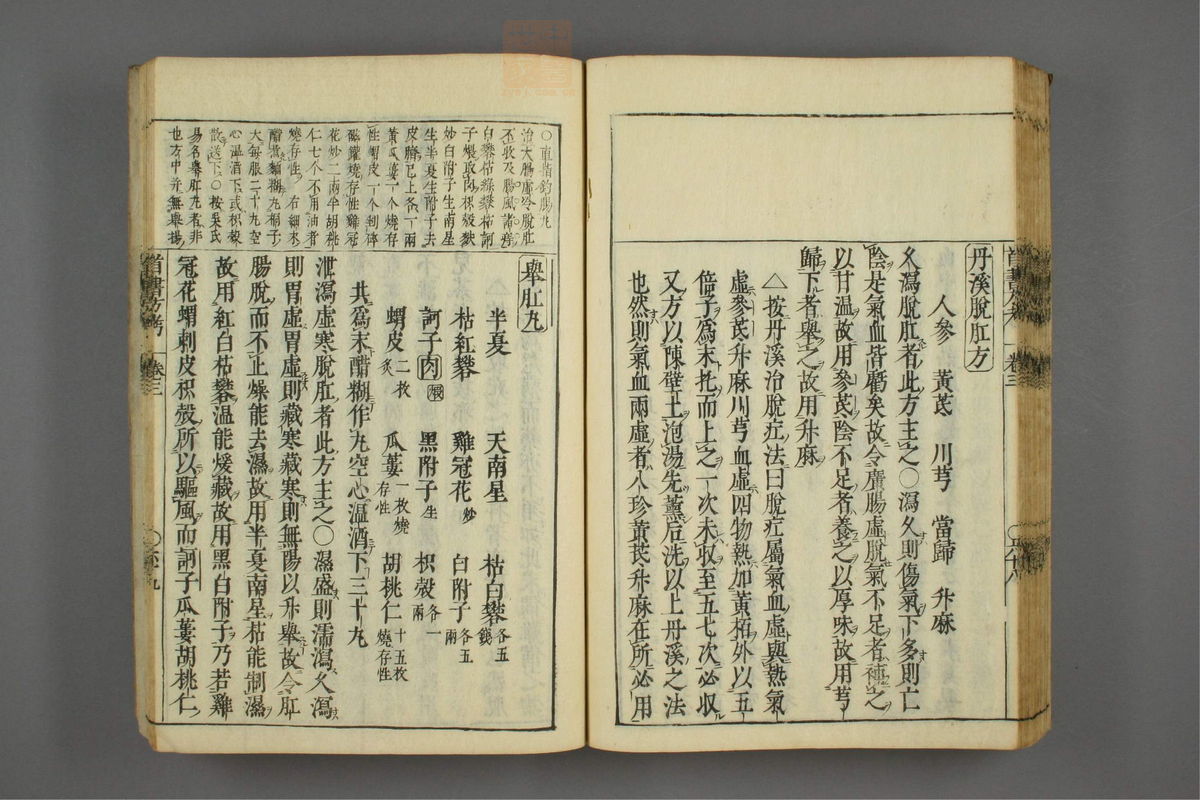 丹溪脫肛方
人參 黃芪 川芎 當歸 升麻
久瀉脫肛者此方主之○瀉久則傷氣下多則亡
陰是氣血皆虧矣故令廣腸虛脫氣不足者補之
以甘温故用參芪陰不足者養之以厚味故用芎
歸下者舉之故用升麻
△按丹溪治脫疘法曰脫疘屬氣血虛與熱氣
虛參芪升麻川芎血虛四物熱加黃栢外以五
倍子爲末托而上之一次未収至五七次必収
又方以陳壁土泡湯先薰后洗以上丹溪之法
也然則氣血兩虛者八珍黃芪升麻在所必用
卷三
○直指釣腸丸
治大腸虛冷脫肛
不收及腸風諸痔
白礬枯綠礬枯訶
子煨取肉枳殼麩
炒白附子生南星
生半夏生附子去
皮臍已上各一兩
黃瓜蔞一个燒存
性蝟皮一个剉碎
磁罐燒存性雞冠
花炒二兩半胡桃
仁七个不用油者
燒存性 右細末
醋煮麵糊丸梧子
大每服二十九空
心温酒下或枳殼
散送下○按吳氏
易名舉肛丸者非
也方中并無舉揚
舉肛丸
半夏 天南星 枯白礬 各五錢
枯紅礬 雞冠花 炒 白附子 各五兩
訶子肉 煨 黑附子 生 枳殼 各一兩
蝟皮 二枚炙 瓜蔞 一枚燒存性 胡桃仁 十五枚燒存性
共爲末醋糊作丸空心温酒下三十丸
泄瀉虛寒脫肛者此方主之○濕盛則濡瀉久瀉
則胃虛胃虛則藏寒藏寒則無陽以升舉故令肛
腸脫而不止燥能去濕故用半夏南星枯能制濕
故用紅白枯礬温能煖藏故用黑白附子乃若雞
冠花蝟刺皮枳殼所以驅風而訶子瓜蔞胡桃仁
首書方考 卷三